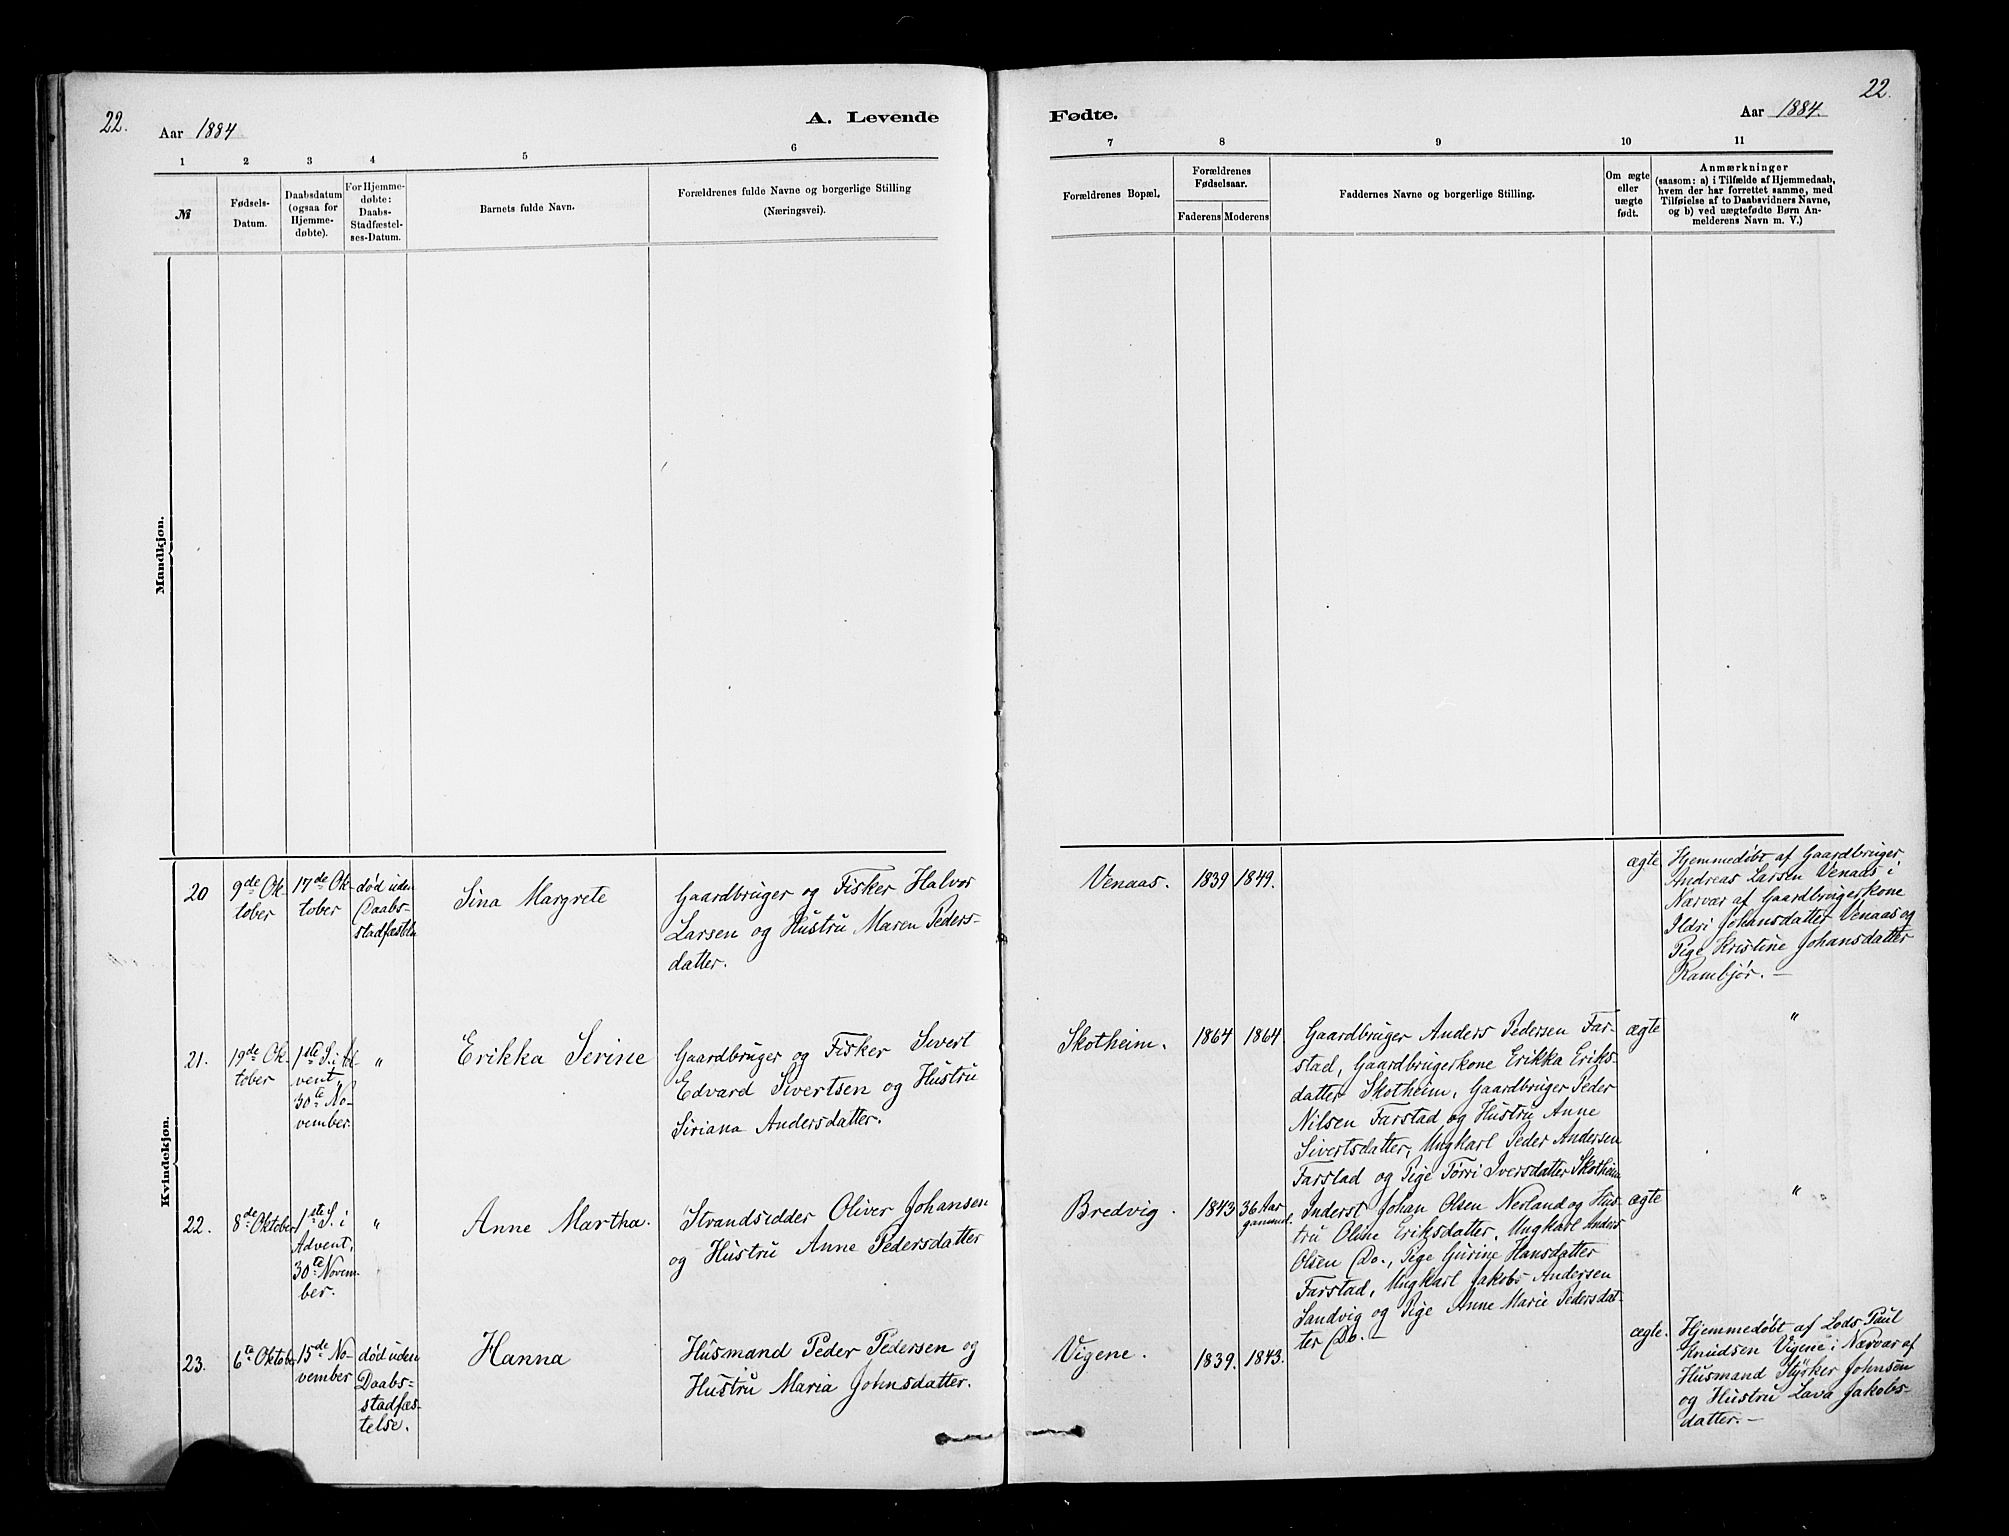 22.
Aar 1884
A. Levende
1 2 3 4 5 6
№
Fødsels-
Datum.
Daabsdatum
(ogsaa for
Hjemme-
døbte).
For Hjemme-
døbte:
Daabs-
Stadfæstel-
ses-Datum.
Barnets fulde Navn.
Forældrenes fulde Navne og borgerlige Stilling
(Næringsvei).
Mandkjøn.
Kvindekjøn.
20
9de Ok-
tober
17de Ok-
tober
død uden
Daabs-
stadfæstelse
Sina Margrete
Gaardbruger og Fisker Halvor
Larsen og Hustru Maren Peders-
datter.
21.
19de Ok-
tober
1ste S. i Ad-
vent,
30te No-
vember.
"
Erikka Serine
Gaardbruger og Fisker Sivert
Edvard Sivertsen og Hustru
Siriana Andersdatter.
22.
8de Oktober
1ste S. i
Advent,
30te Novem-
ber.
"
Anne Martha.
Strandsidder Oliver Johansen
og Hustru Anne Pedersdatter
23.
6te Oktober
15de No-
vember
død uden
Daabs-
stadfæs-
telse.
Hanna
Husmand Peder Pedersen og
Hustru Maria Johnsdatter.
Fødte.
Aar 1884.
22.
7 8 9 10 11
Forældrenes Bopæl.
Forældrenes
Fødselsaar.
Faderens Moderens
Faddernes Navne og borgerlige Stilling.
Om ægte
eller
uægte
født.
Anmærkninger
(saasom: a) i Tilfælde af Hjemmedaab,
hvem der har forrettet samme, med
Tilføielse af to Daabsvidners Navne,
og b) ved uægtefødte Børn An-
melderens Navn m. V.)
Venaas. 1839 1849.
ægte
Hjemmedøbt af Gaardbruger
Andreas Larsen Venaas i
Nærvær af Gaardbrugerkone
Ildri Johansdatter Venaas og
Pige Kristine Johansdatter
Rambjør. —
Skotheim. 1864 1864
Gaardbruger Anders Pedersen Far-
stad, Gaardbrugerkone Erikka Eriks-
datter Skotheim, Gaardbruger Peder
Nilsen Farstad og Hustru Anne
Sivertsdatter, Ungkarl Peder Andersen
Farstad og Pige Tørri Iversdatter Skotheim
ægte
"
Bredvig. 1843 36 Aar
gammel.
Inderst Johan Olsen Nerland og Hus-
tru Oline Eriksdatter, Ungkarl Anders
Olsen Do., Pige Gurine Hansdatter
Farstad, Ungkarl Jakobs Andersen
Sandvig og Pige Anne Marie Pedersdat-
ter Do. —
ægte
"
Vigene. 1839. 1843.
ægte.
Hjemmedøbt af Lods Paul
Knudsen Vigene i Nærvær af
Husmand Styrker Johnsen
og Hustru Lava Jakobs-
datter. —